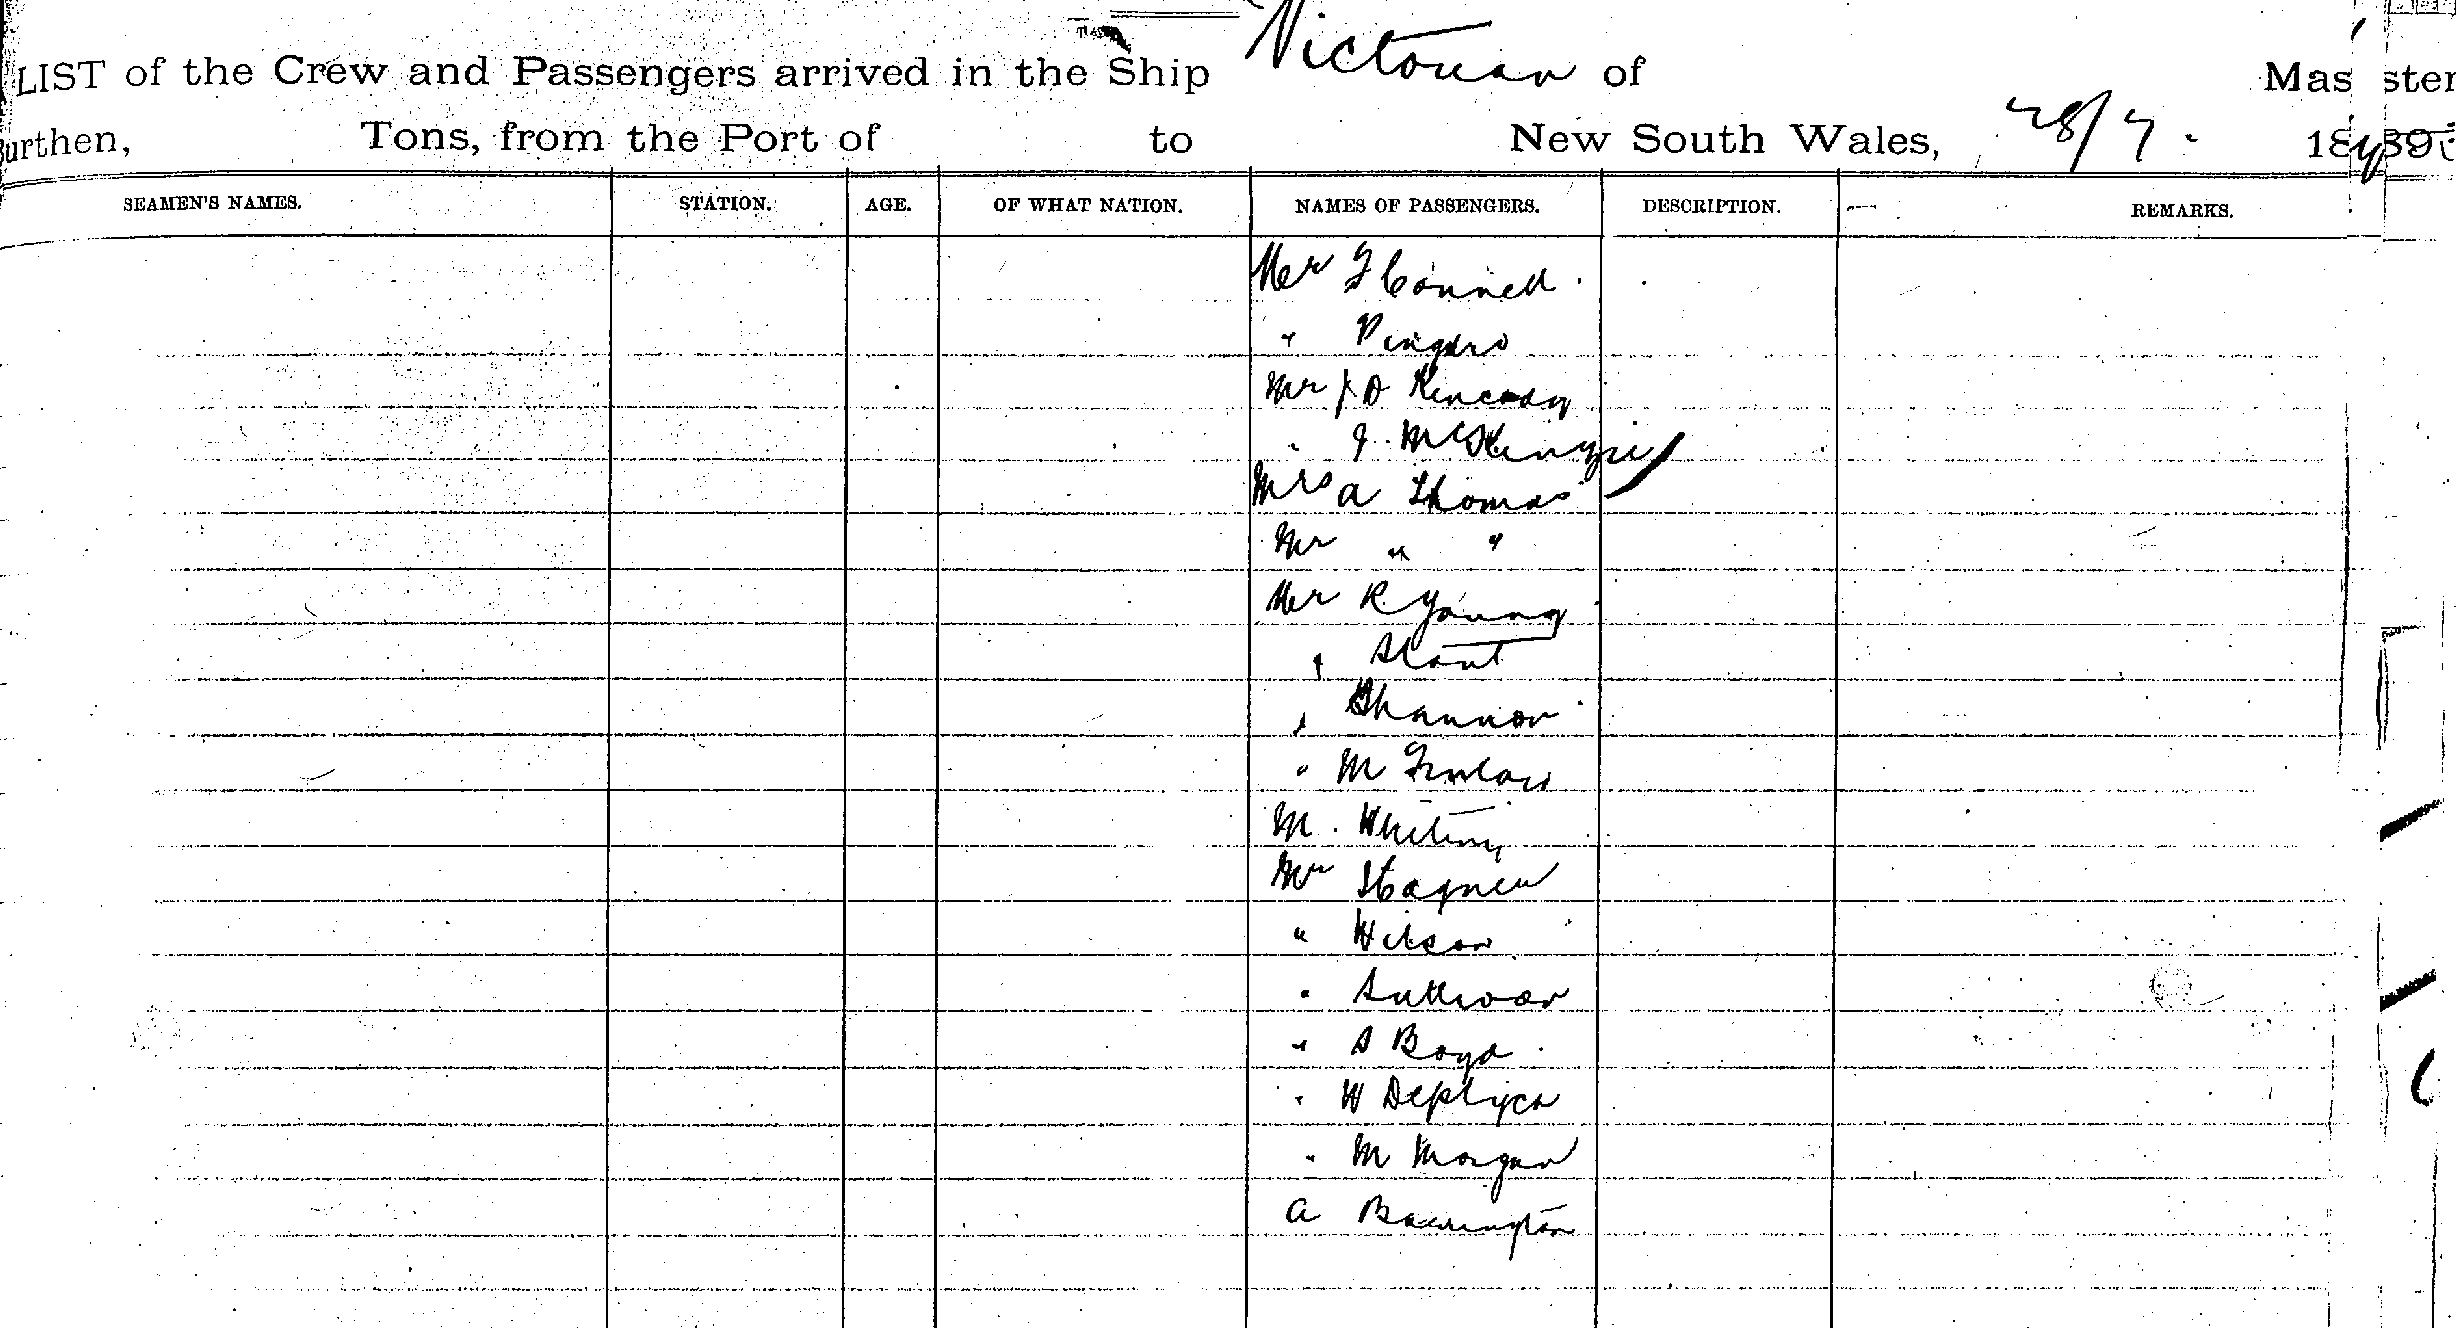 LIST of the Crew and Passengers arrived in the Ship Victorian of Master
Burthen, Tons, from the Port of to New South Wales, 28/7. 189
SEAMEN'S NAMES. STATION. AGE. OF WHAT NATION. NAMES OF PASSENGERS. DESCRIPTION. REMARKS.
Mr Connell
"
Mr J D Kennedy
" J. McKenzie
Mrs A Thomas
Mr " "
Mr R Young
" Stant
" Shannon
" M
M. Whiting
Mr
" Wilson
" Sullivan
" S Boyd
" W
" M Morgan
A Barrington